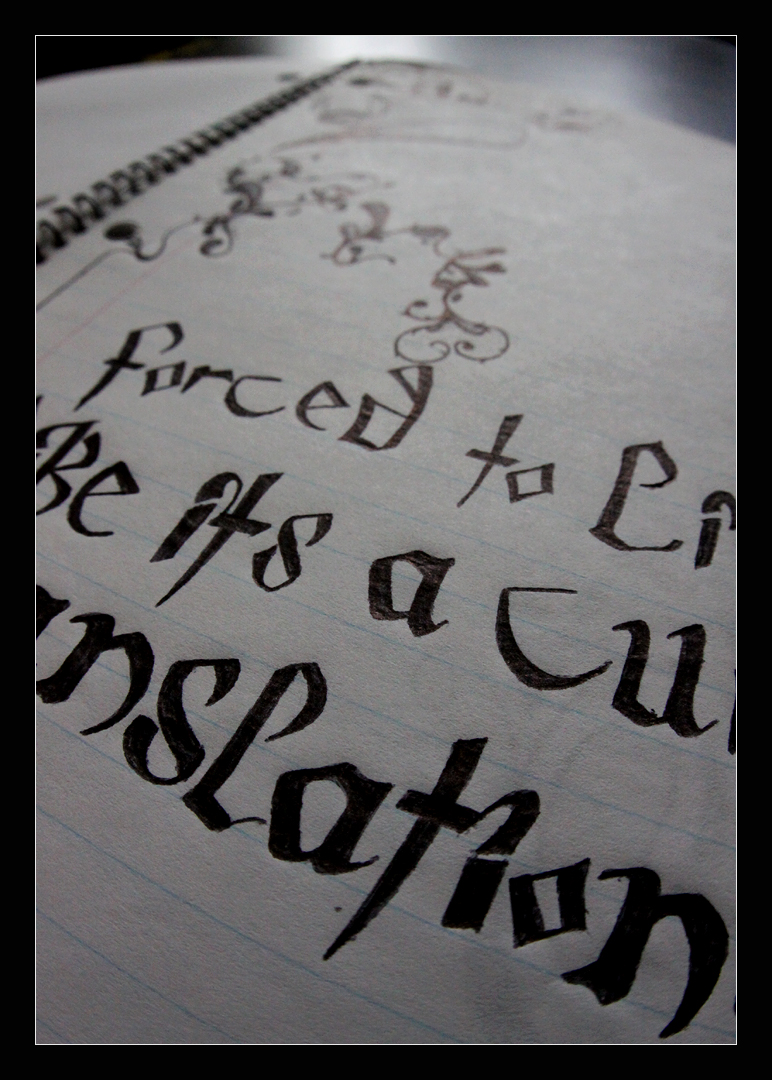 forced to li
Be its a cu
anslation